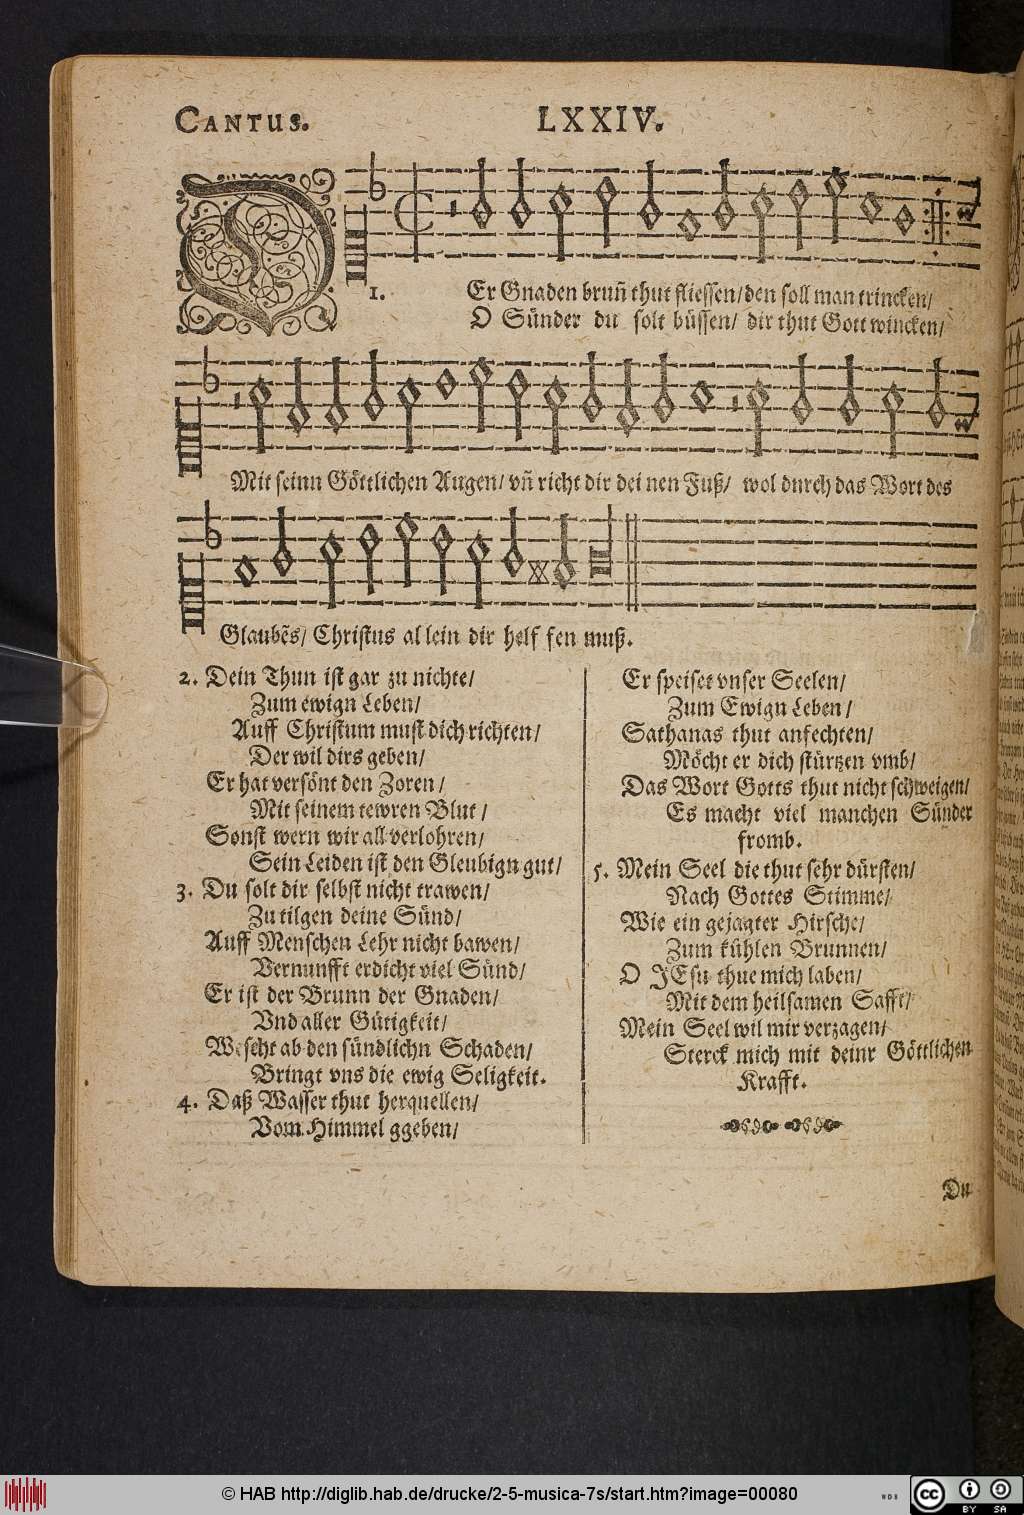 CANTUS. LXXIV.
D
1. Er Gnaden bruñ thut fliessen/den soll man trincken/
O Sünder du solt büssen/ dir thut Gott wincken/
Mit seinn Göttlichen Augen/ vñ richt dir dei nen Fuß/ wol durch das Wort des
Glaubẽs/ Christus al lein dir helf fen muß.
2. Dein Thun ist gar zu nichte/
Zum ewign Leben/
Auff Christum must dich richten/
Der wil dirs geben/
Er hat versönt den Zoren/
Mit seinem tewren Blut/
Sonst wern wir all verlohren/
Sein Leiden ist den Gleubign gut/
3. Du solt dir selbst nicht trawen/
Zu tilgen deine Sünd/
Auff Menschen Lehr nicht bawen/
Vernunfft erdicht viel Sünd/
Er ist der Brunn der Gnaden/
Vnd aller Gütigkeit/
Wescht ab den sündlichn Schaden/
Bringt vns die ewig Seligkeit.
4. Daß Wasser thut herquellen/
Vom Himmel ggeben/
Er speiset vnser Seelen/
Zum Ewign Leben/
Sathanas thut anfechten/
Möcht er dich stürtzen vmb/
Das Wort Gotts thut nicht schweigen/
Es macht viel manchen Sünder
fromb.
5. Mein Seel die thut sehr dürsten/
Nach Gottes Stimme/
Wie ein gejagter Hirsche/
Zum kühlen Brunnen/
O JEsu thue mich laben/
Mit dem heilsamen Safft/
Mein Seel wil mir verzagen/
Sterck mich mit deinr Göttlichen
Krafft.
Du
© HAB http://diglib.hab.de/drucke/2-5-musica-7s/start.htm?image=00080
WDB
cc BY SA